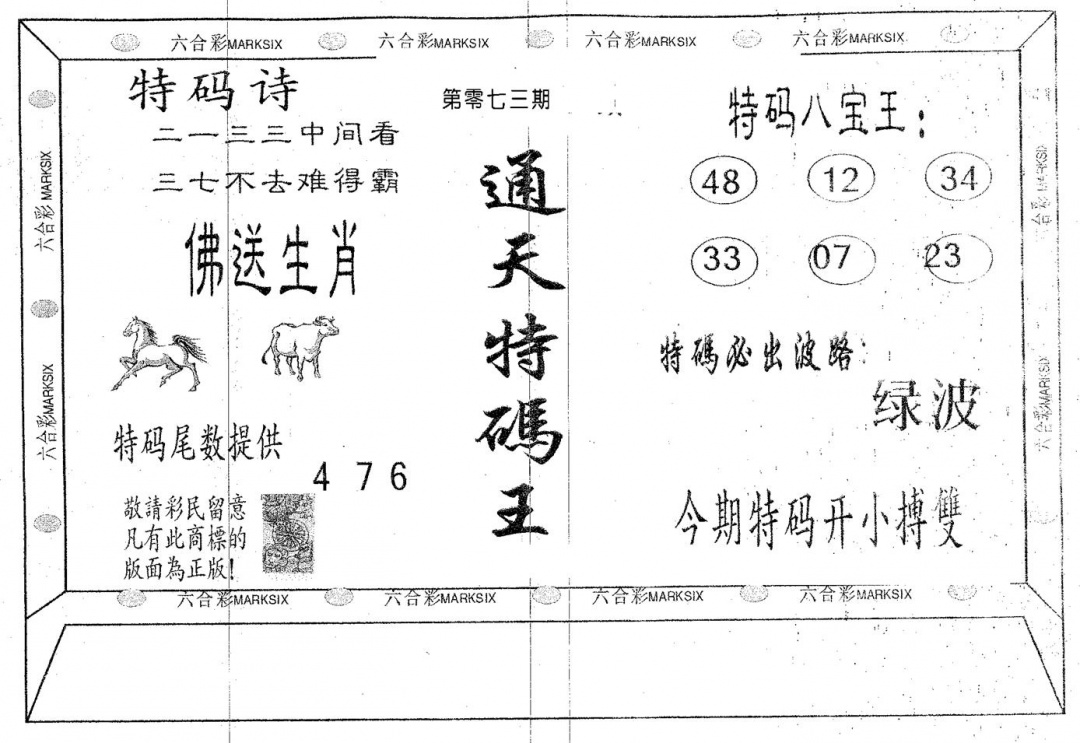 六合彩MARKSIX 六合彩MARKSIX 六合彩MARKSIX 六合彩MARKSIX
六合彩MARKSIX
六合彩MARKSIX
特码诗
二一三三中间看
三七不去难得霸
佛送生肖
特码尾数提供
4 7 6
敬請彩民留意
凡有此商標的
版面為正版!
第零七三期
通天特碼王
特码八宝王:
48 12 34
33 07 23
特碼必出波路:
绿波
今期特码开小搏雙
六合彩MARKSIX
六合彩MARKSIX
六合彩MARKSIX 六合彩MARKSIX 六合彩MARKSIX 六合彩MARKSIX